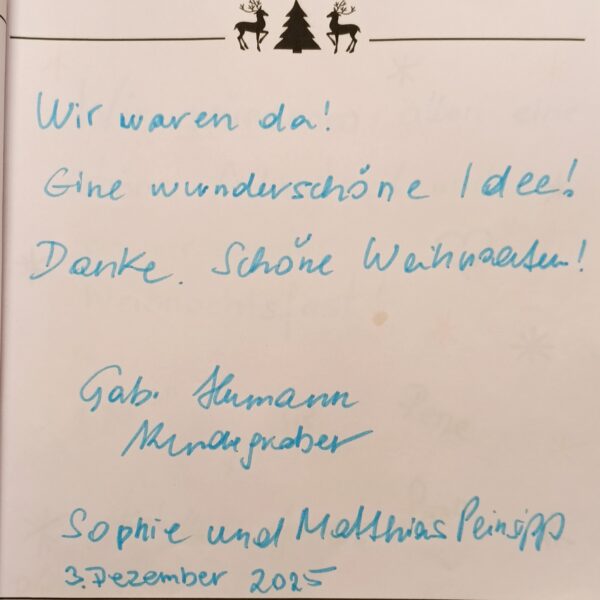 Wir waren da!
Eine wunderschöne Idee!
Danke. Schöne Weihnachten!
Gab.
Sophie und Matthias Peinsipp
3. Dezember 2025